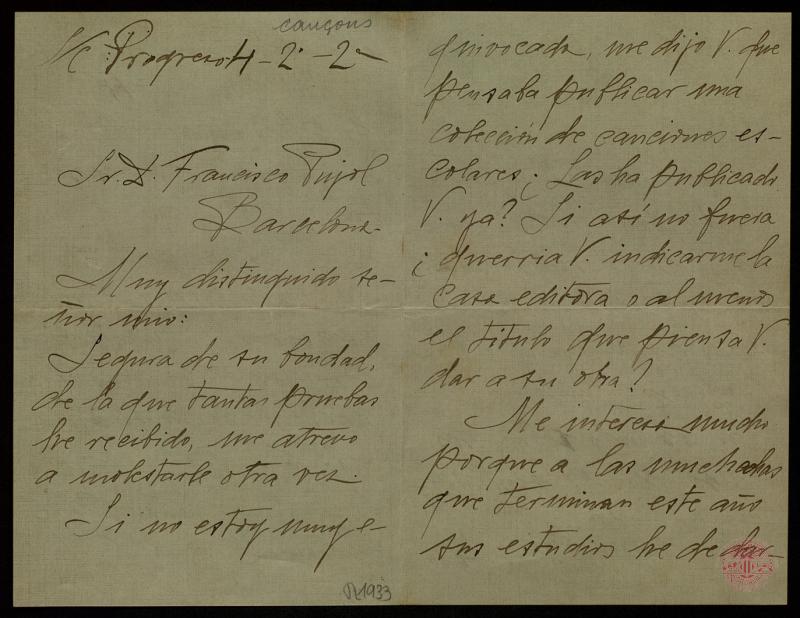 cançons
S/c: Progreso 4 - 2º - 2ª
Sr. D. Francisco Pujol
Barcelona.
Muy distinguido se-
ñor mio:
Segura de su bondad,
de la que tantas pruebas
he recibido, me atrevo
a molestarle otra vez.
Si no estoy muy e-
R 1933
quivocada, me dijo V. que
pensaba publicar una
colección de canciones es-
colares ¿Las ha publicado
V. ya? Si así no fuera
¿querria V. indicarme la
casa editora o al menos
el titulo que piensa V.
dar a su obra?
Me interesa mucho
porque a las muchachas
que terminan este año
sus estudios he de dar-